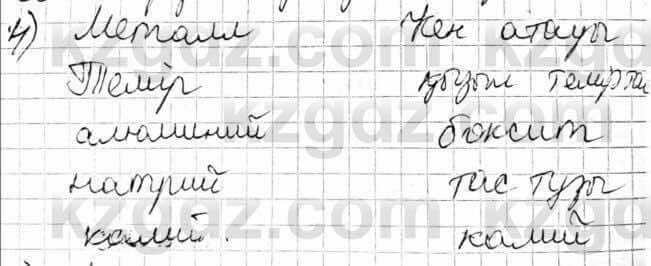 4) Металл Кен атауы
Темір қызыл темірта
алюминий боксит
натрий тас тузы
калий. калий